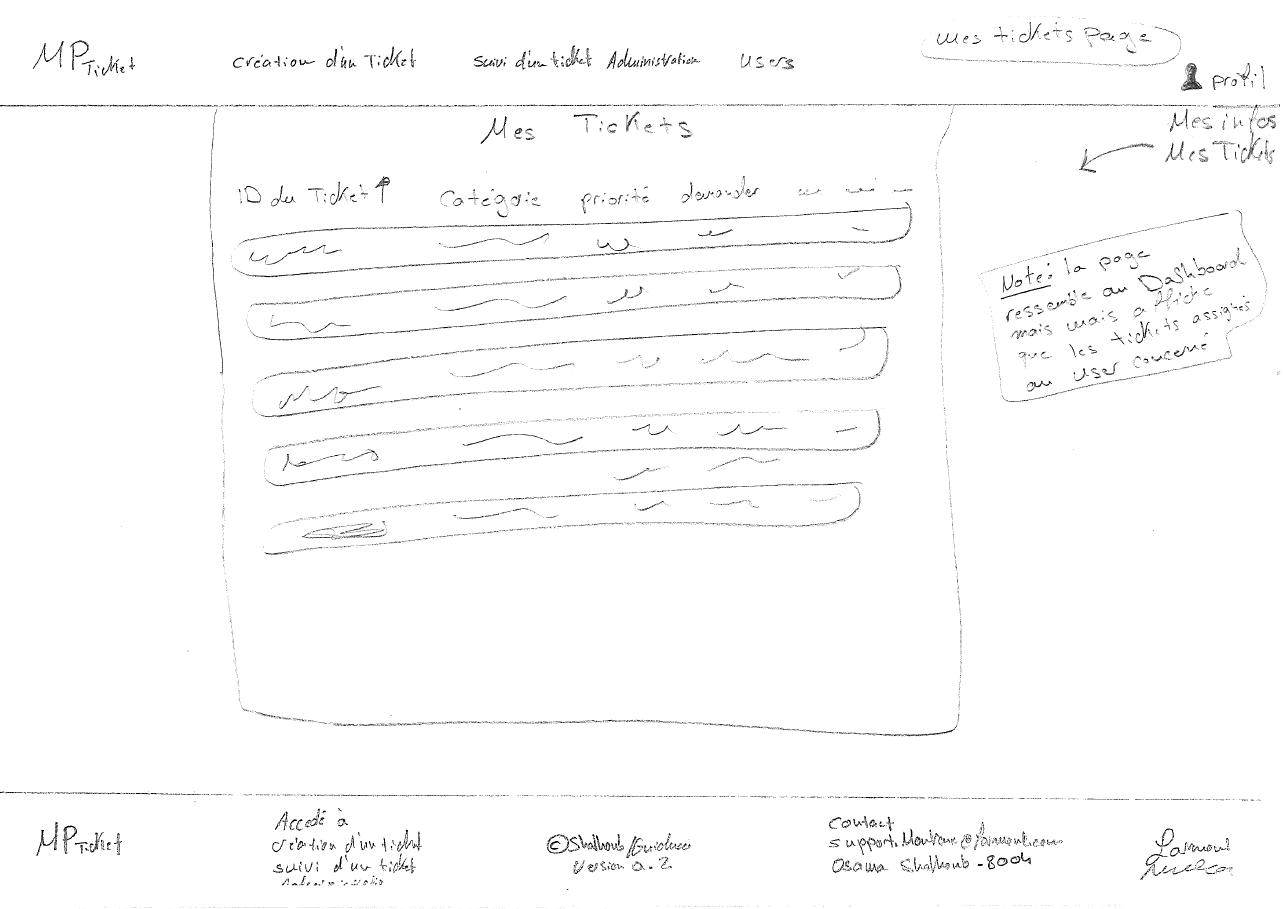 MPTicket
création d'un Ticket
suivi d'un ticket
Administration
Users
Mes tickets page
profil
Mes infos
Mes Tickets
Mes Tickets
ID du Ticket ↑
Catégorie
priorité
demander
Note: la page
ressemble au Dashboard
mais mais affiche
que les tickets assignés
au user concerné
MPTicket
Accedé à
création d'un ticket
suivi d'un ticket
©Shalhoub/
Version 0.2
Contact
Osama Shalhoub - 8004